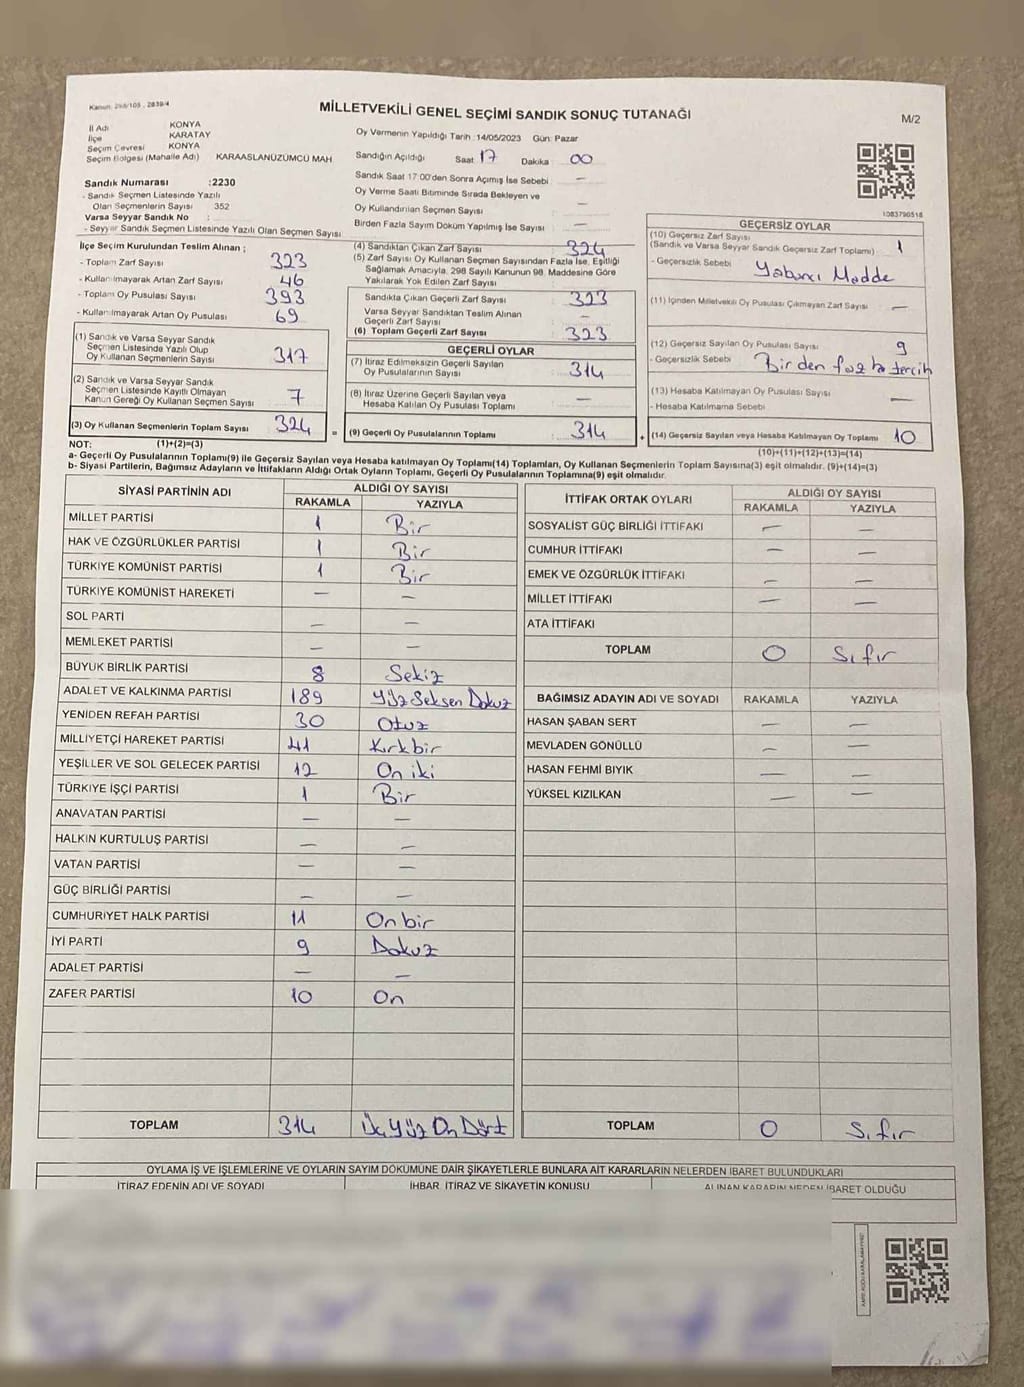 Kanun: 298/105, 2839/4
MİLLETVEKİLİ GENEL SEÇİMİ SANDIK SONUÇ TUTANAĞI
M/2
İl Adı KONYA
İlçe KARATAY
Seçim Çevresi KONYA
Seçim Bölgesi (Mahalle Adı) KARAASLANÜZÜMCÜ MAH
Sandık Numarası :2230
- Sandık Seçmen Listesinde Yazılı
Olan Seçmenlerin Sayısı 352
Varsa Seyyar Sandık No :
- Seyyar Sandık Seçmen Listesinde Yazılı Olan Seçmen Sayısı
Oy Vermenin Yapıldığı Tarih : 14/05/2023 Gün: Pazar
Sandığın Açıldığı Saat 17 Dakika 00
Sandık Saat 17:00'den Sonra Açımış İse Sebebi : —
Oy Verme Saati Bitiminde Sırada Bekleyen ve
Oy Kullandırılan Seçmen Sayısı —
Birden Fazla Sayım Döküm Yapılmış İse Sayısı : —
1083790518
İlçe Seçim Kurulundan Teslim Alınan ;
- Toplam Zarf Sayısı 323
- Kullanılmayarak Artan Zarf Sayısı 46
- Toplam Oy Pusulası Sayısı 393
- Kullanılmayarak Artan Oy Pusulası 69
(1) Sandık ve Varsa Seyyar Sandık
Seçmen Listesinde Yazılı Olup
Oy Kullanan Seçmenlerin Sayısı 317
(2) Sandık ve Varsa Seyyar Sandık
Seçmen Listesinde Kayıtlı Olmayan
Kanun Gereği Oy Kullanan Seçmen Sayısı 7
(3) Oy Kullanan Seçmenlerin Toplam Sayısı 324
(4) Sandıktan Çıkan Zarf Sayısı 324
(5) Zarf Sayısı Oy Kullanan Seçmen Sayısından Fazla İse, Eşitliği
Sağlamak Amacıyla, 298 Sayılı Kanunun 98. Maddesine Göre
Yakılarak Yok Edilen Zarf Sayısı
Sandıkta Çıkan Geçerli Zarf Sayısı 323
Varsa Seyyar Sandıktan Teslim Alınan
Geçerli Zarf Sayısı —
(6) Toplam Geçerli Zarf Sayısı 323
GEÇERLİ OYLAR
(7) İtiraz Edilmeksizin Geçerli Sayılan
Oy Pusulalarının Sayısı 314
(8) İtiraz Üzerine Geçerli Sayılan veya
Hesaba Katılan Oy Pusulası Toplamı —
= (9) Geçerli Oy Pusulalarının Toplamı 314 +
GEÇERSİZ OYLAR
(10) Geçersiz Zarf Sayısı
(Sandık ve Varsa Seyyar Sandık Geçersiz Zarf Toplamı) 1
- Geçersizlik Sebebi Yabancı Madde
(11) İçinden Milletvekili Oy Pusulası Çıkmayan Zarf Sayısı —
(12) Geçersiz Sayılan Oy Pusulası Sayısı 9
- Geçersizlik Sebebi Birden fazla tercih
(13) Hesaba Katılmayan Oy Pusulası Sayısı —
- Hesaba Katılmama Sebebi
(14) Geçersiz Sayılan veya Hesaba Katılmayan Oy Toplamı 10
NOT: (1)+(2)=(3) (10)+(11)+(12)+(13)=(14)
a- Geçerli Oy Pusulalarının Toplamı(9) ile Geçersiz Sayılan veya Hesaba katılmayan Oy Toplamı(14) Toplamları, Oy Kullanan Seçmenlerin Toplam Sayısına(3) eşit olmalıdır. (9)+(14)=(3)
b- Siyasi Partilerin, Bağımsız Adayların ve İttifakların Aldığı Ortak Oyların Toplamı, Geçerli Oy Pusulalarının Toplamına(9) eşit olmalıdır.
SİYASİ PARTİNİN ADI ALDIĞI OY SAYISI
RAKAMLA YAZIYLA
MİLLET PARTİSİ 1 Bir
HAK VE ÖZGÜRLÜKLER PARTİSİ 1 Bir
TÜRKİYE KOMÜNİST PARTİSİ 1 Bir
TÜRKİYE KOMÜNİST HAREKETİ — —
SOL PARTİ — —
MEMLEKET PARTİSİ — —
BÜYÜK BİRLİK PARTİSİ 8 Sekiz
ADALET VE KALKINMA PARTİSİ 189 Yüz Seksen Dokuz
YENİDEN REFAH PARTİSİ 30 Otuz
MİLLİYETÇİ HAREKET PARTİSİ 41 Kırkbir
YEŞİLLER VE SOL GELECEK PARTİSİ 12 On iki
TÜRKİYE İŞÇİ PARTİSİ 1 Bir
ANAVATAN PARTİSİ — —
HALKIN KURTULUŞ PARTİSİ — —
VATAN PARTİSİ — —
GÜÇ BİRLİĞİ PARTİSİ — —
CUMHURİYET HALK PARTİSİ 11 On bir
İYİ PARTİ 9 Dokuz
ADALET PARTİSİ — —
ZAFER PARTİSİ 10 On
TOPLAM 314 Üç Yüz On Dört
İTTİFAK ORTAK OYLARI ALDIĞI OY SAYISI
RAKAMLA YAZIYLA
SOSYALİST GÜÇ BİRLİĞİ İTTİFAKI — —
CUMHUR İTTİFAKI — —
EMEK VE ÖZGÜRLÜK İTTİFAKI — —
MİLLET İTTİFAKI — —
ATA İTTİFAKI
TOPLAM 0 Sıfır
BAĞIMSIZ ADAYIN ADI VE SOYADI RAKAMLA YAZIYLA
HASAN ŞABAN SERT — —
MEVLADEN GÖNÜLLÜ — —
HASAN FEHMİ BIYIK — —
YÜKSEL KIZILKAN — —
TOPLAM 0 Sıfır
OYLAMA İŞ VE İŞLEMLERİNE VE OYLARIN SAYIM DÖKÜMÜNE DAİR ŞİKAYETLERLE BUNLARA AİT KARARLARIN NELERDEN İBARET BULUNDUKLARI
İTİRAZ EDENİN ADI VE SOYADI İHBAR, İTİRAZ VE ŞİKAYETİN KONUSU ALINAN KARARIN NEDEN İBARET OLDUĞU